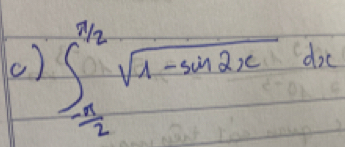 c) ∫_{-π/2}^{π/2} √(1 - sin 2x) dx